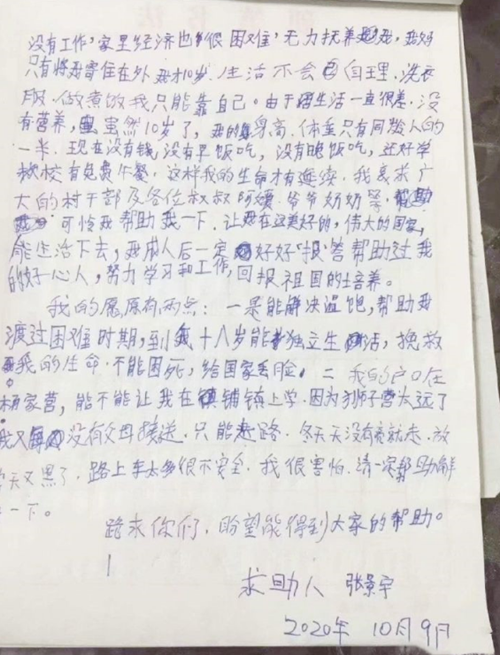 没有工作，家里经济也很困难，无力抚养我，我妈
只有将我寄住在外 我才10岁 生活不会自理. 洗衣
服. 做煮饭我只能靠自己。由于生活一直很差. 没
有营养，虽然10岁了，我的身高. 体重只有同龄人的
一半. 现在没有钱. 没有早饭吃，没有晚饭吃，还好学
校有免费午餐，这样我的生命才有延续. 我恳求广
大的村干部及各位叔叔阿姨. 爷爷奶奶等.
可怜我帮助我一下. 让我在这美好的，伟大的国家，
能生活下去，我成人后一定好好报答帮助过我
的好心人，努力学习和工作，回报祖国的培养。
我的愿原有两点：一是能解决温饱，帮助我
渡过困难时期，到我十八岁能独立生活，挽救
我的生命. 不能困死，给国家丢脸. 二 我的户口在
杨家营，能不能让我在镇铺镇上学. 因为狮子营太远了
我又没有父母接送. 只能走路. 冬天天没有亮就走. 放
学天又黑了. 路上车太多很不安全. 我很害怕. 请一定帮助解
一下。
跪求你们，盼望能得到大家的帮助。
求助人 张景宇
2020年 10月9日